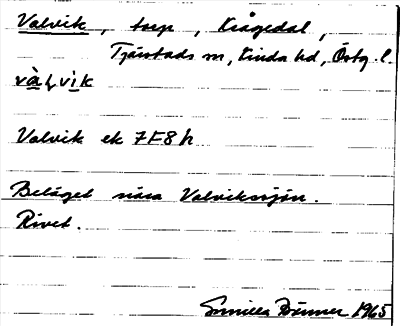 Valvik, torp, Krågedal,
Tjärstads sn, Kinda hd, Östg. l.
và̱lvi̱k
Valvik ek 7F8h
Beläget nära Valviksjön.
Rivet.
Gunilla 1965